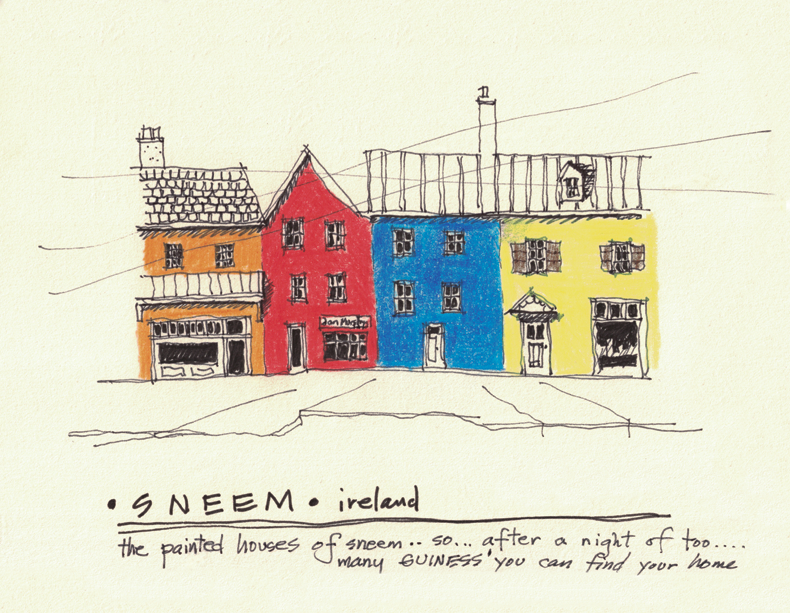 Dan Murphy
• SNEEM • ireland
the painted houses of sneem.. so... after a night of too....
many GUINESS' you can find your home